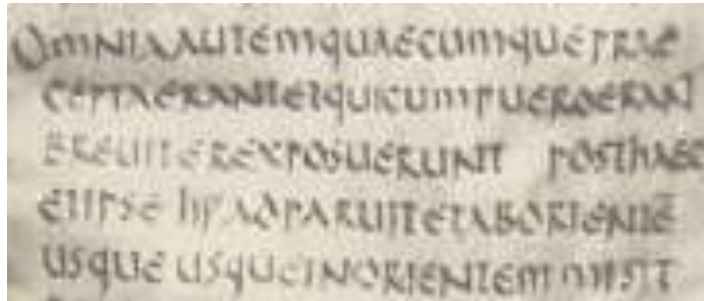 OMNIAAUTEMQUAECUMQUEPRAE
CEPTAERANTETQUICUMPUEROERAN
BREUITEREXPOSUERUNT POSTHAEC
ETIPSE ADPARUITETABORIENTĒ
USQUE USQUEINORIENTEM MISIT